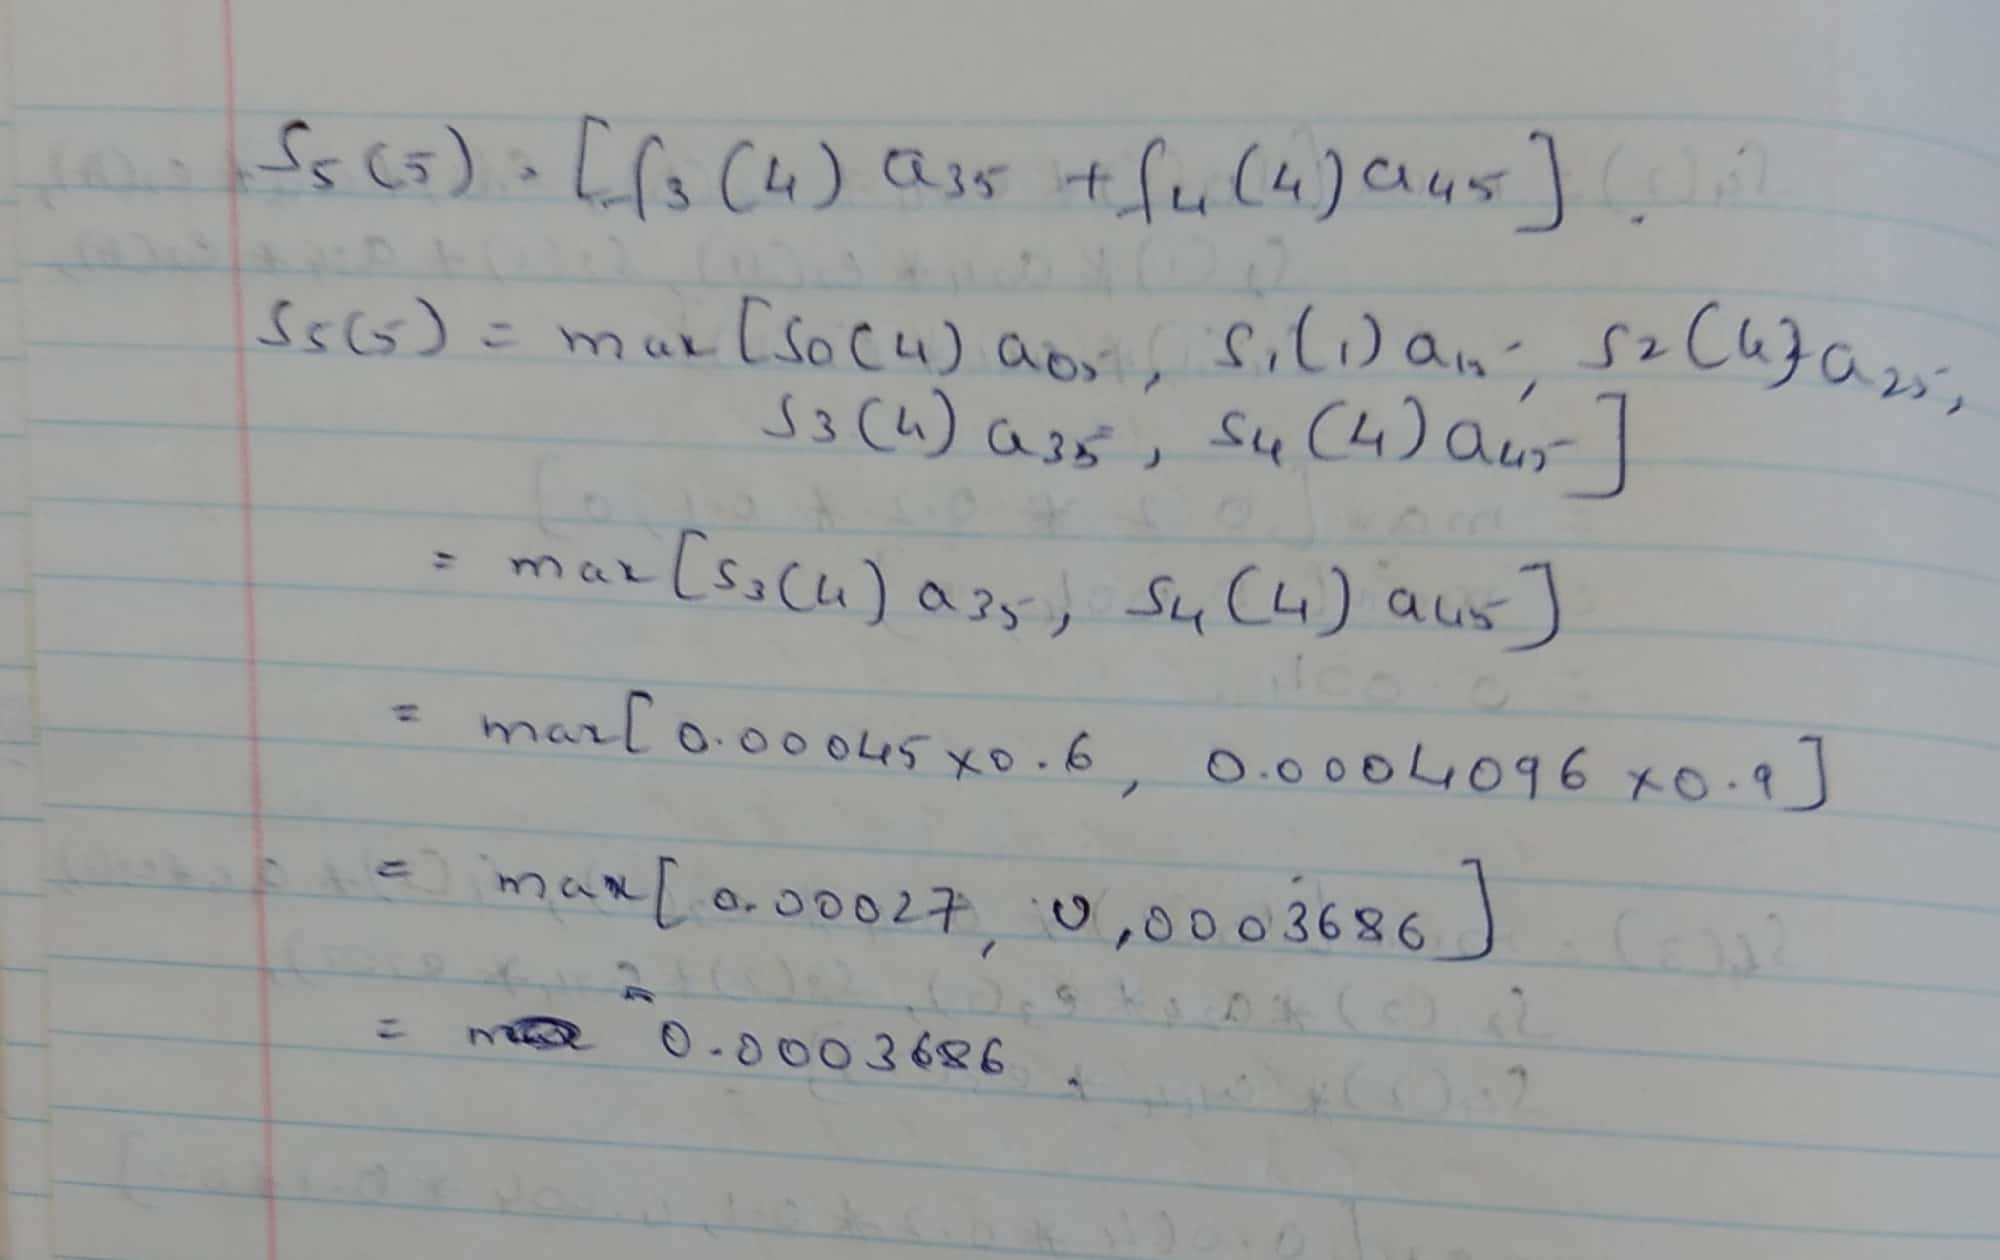 S5(5) = [f3(4) a35 + f4(4) a45].
S5(5) = max [S0(4) a05, S1(1) a15, S2(4) a25,
S3(4) a35, S4(4) a45]
= max [S3(4) a35, S4(4) a45]
= max [0.00045 x 0.6, 0.0004096 x 0.9]
= max [0.00027, 0,0003686]
= 0.0003686.